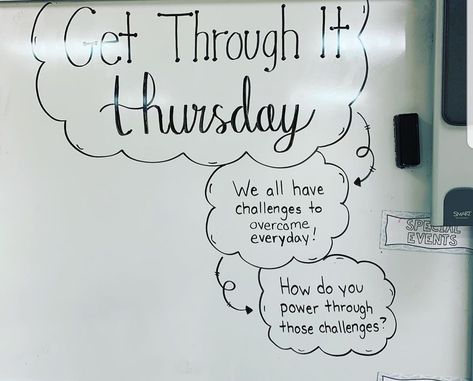 Get Through It
thursday
We all have
challenges to
overcome
everyday!
How do you
power through
those challenges?
SMART
SPECIAL
EVENTS